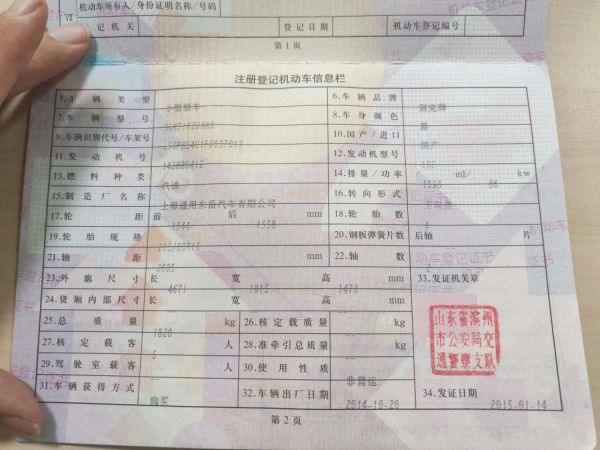 机动车所有人/身份证明名称/号码
Ⅶ
登记机关 登记日期 机动车登记编号
第1页
注册登记机动车信息栏
5.车辆类型 小型轿车 6.车辆品牌 别克牌
7.车辆型号 8.车身颜色 黑
9.车辆识别代号/车架号 10.国产/进口 国产
11.发动机号 142880412 12.发动机型号 LDE
13.燃料种类 汽油 14.排量/功率 1598 ml/ 86 kw
15.制造厂名称 上海通用东岳汽车有限公司 16.转向形式 方向盘
17.轮距 前 1544 后 1558 mm 18.轮胎数 4
19.轮胎规格 205/60R16 20.钢板弹簧片数 后轴 片
21.轴距 2685 mm 22.轴数 2
23.外廓尺寸 长 4671 宽 1815 高 1478 mm 33.发证机关章
24.货厢内部尺寸 长 宽 高 mm
25.总质量 1820 kg 26.核定载质量 kg
27.核定载客 5 人 28.准牵引总质量 kg
29.驾驶室载客 人 30.使用性质 非营运
31.车辆获得方式 购买 32.车辆出厂日期 2014-10-20 34.发证日期 2015-01-14
山东省滨州
市公安局交
通警察支队
第2页